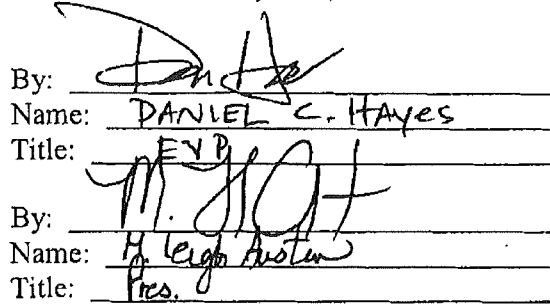 By: Dan Hayes
Name: DANIEL C. HAyes
Title: EVP
By:
Name: M. Leigh Austin
Title: Pres.